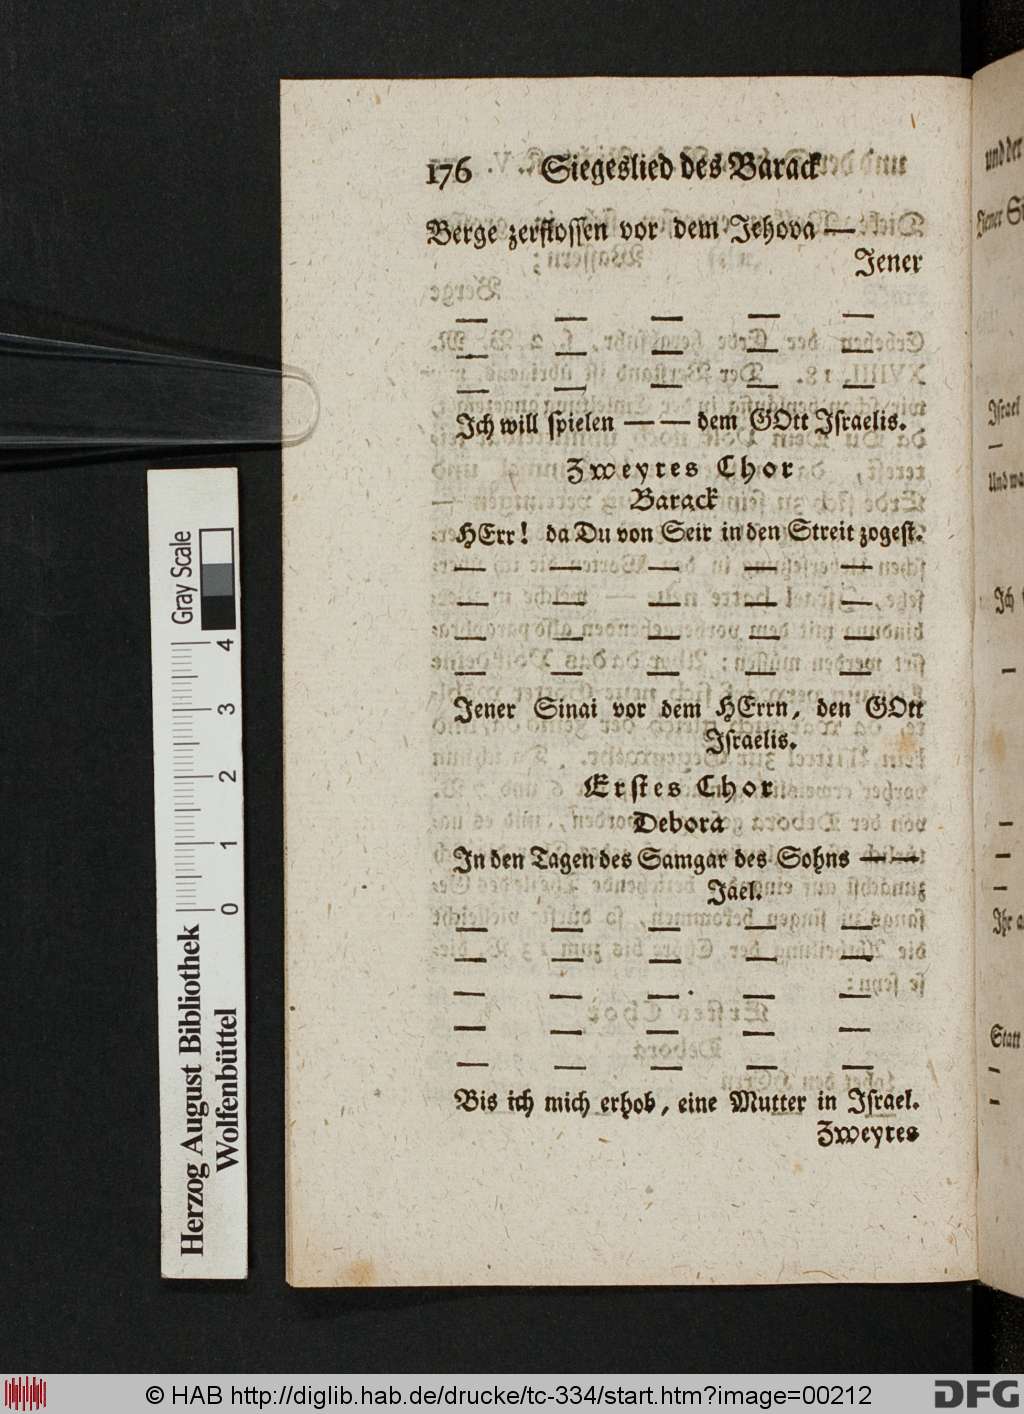 176 Siegeslied des Barack
Berge zerfloſſen vor dem Jehova —
Jener
— — — — —
— — — — —
— — — — —
Ich will ſpielen — — dem GOtt Iſraelis.
Zweytes Chor
Barack
HErr! da Du von Seir in den Streit zogeſt.
— — — — —
— — — — —
— — — — —
— — — — —
Jener Sinai vor dem HErrn, den GOtt
Iſraelis.
Erſtes Chor
Debora
In den Tagen des Samgar des Sohns — —
Jael.
— — — — —
— — — — —
— — — — —
— — — — —
— — — — —
Bis ich mich erhob, eine Mutter in Iſrael.
Zweytes
und der
Jener
Iſrael
—
Und
Ich
—
—
—
—
Statt
—
—
Gray Scale
4
3
2
1
0
Herzog August Bibliothek
Wolfenbüttel
© HAB http://diglib.hab.de/drucke/tc-334/start.htm?image=00212
DFG